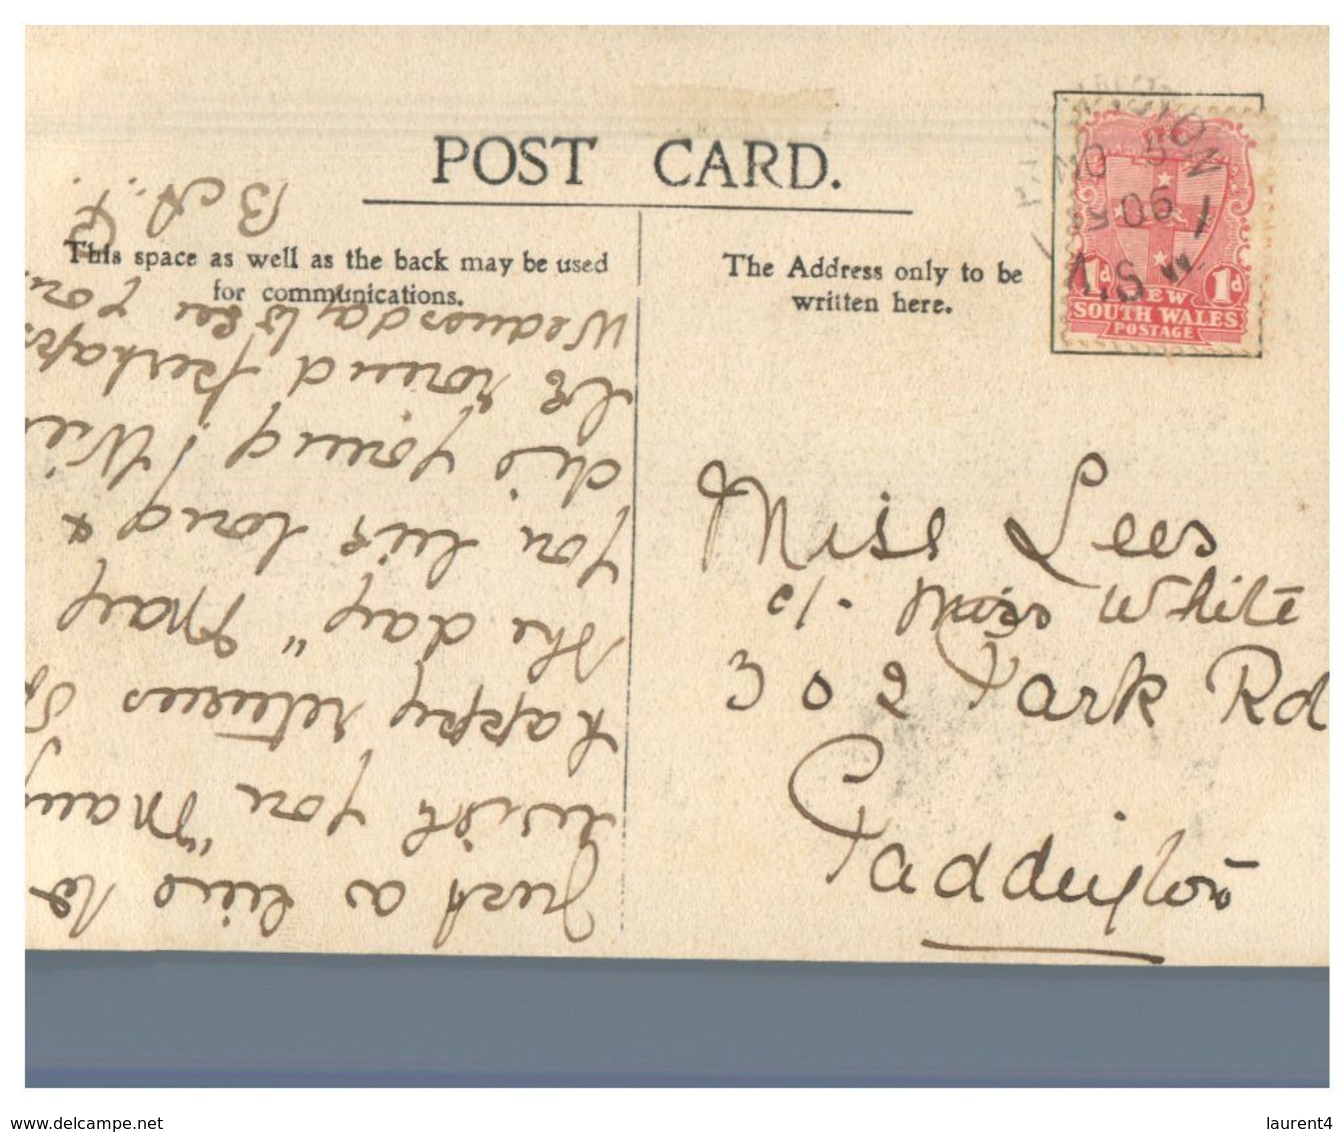 POST CARD.
This space as well as the back may be used
for communications.
The Address only to be
written here.
1d 1d
NEW
SOUTH WALES
POSTAGE
Miss Lees
c/- Miss White
302 Park Rd
Paddington
Just a line to
wish you "Many
happy returns
the day" May
you live long &
die young!
be round perhaps
Wednesday to see you.
www.delcampe.net
laurent4